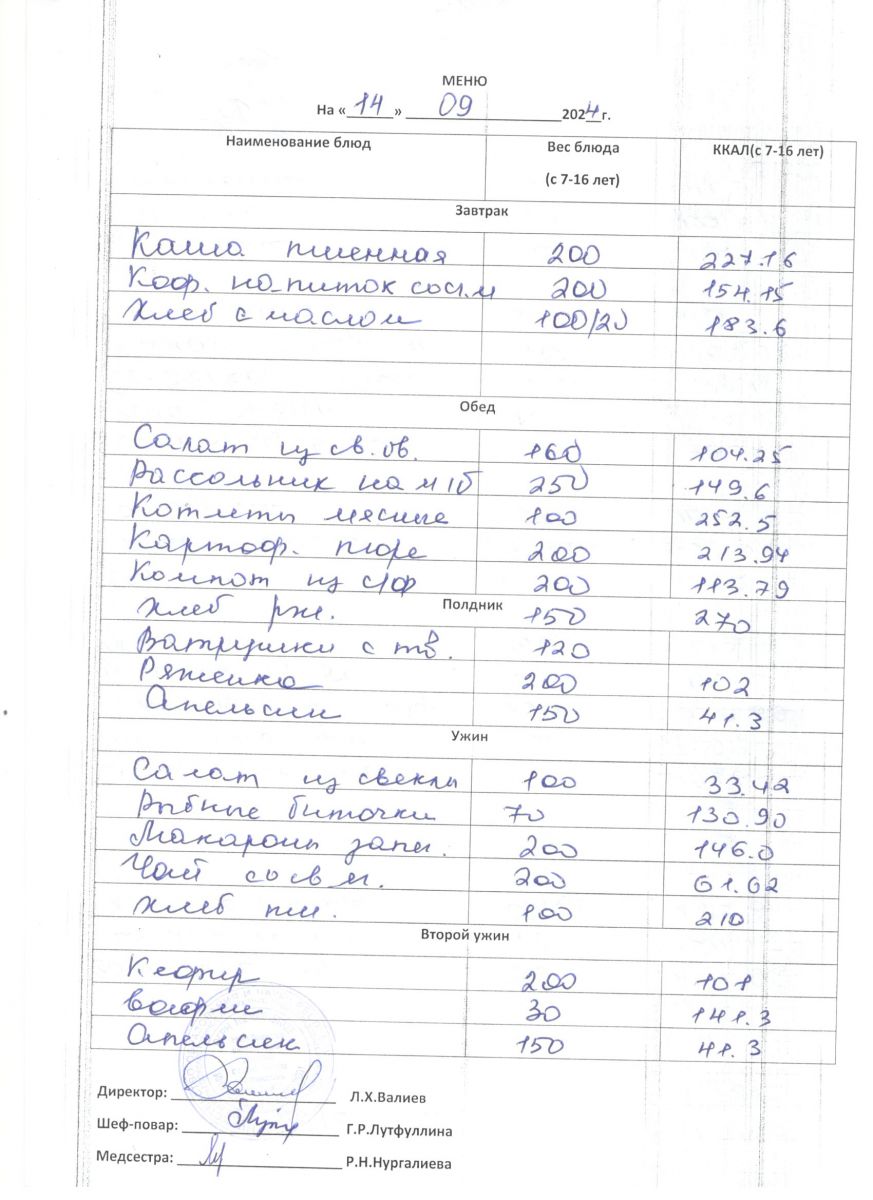 МЕНЮ
На « 14 » 09 2024 г.
Наименование блюд Вес блюда (с 7-16 лет) ККАЛ(с 7-16 лет)
Завтрак
Каша пшенная 200 227.16
Коф. напиток со сг.м 200 154.15
Хлеб с маслом 100/20 183.6
Обед
Салат из св. ов. 160 104.25
Рассольник на м/б 250 149.6
Котлеты мясные 100 252.5
Картоф. пюре 200 213.94
Компот из с/ф 200 113.79
Хлеб рж. 150 270
Полдник
Ватрушки с тв. 120
Ряженка 200 102
Апельсин 150 41.3
Ужин
Салат из свеклы 100 33.42
Рыбные биточки 70 130.90
Макароны запеч. 200 146.0
Чай со св м. 200 61.62
Хлеб пш. 100 210
Второй ужин
Кефир 200 101
Вафли 30 141.3
Апельсин 150 41.3
Директор: Л.Х.Валиев
Шеф-повар: Г.Р.Лутфуллина
Медсестра: Р.Н.Нургалиева